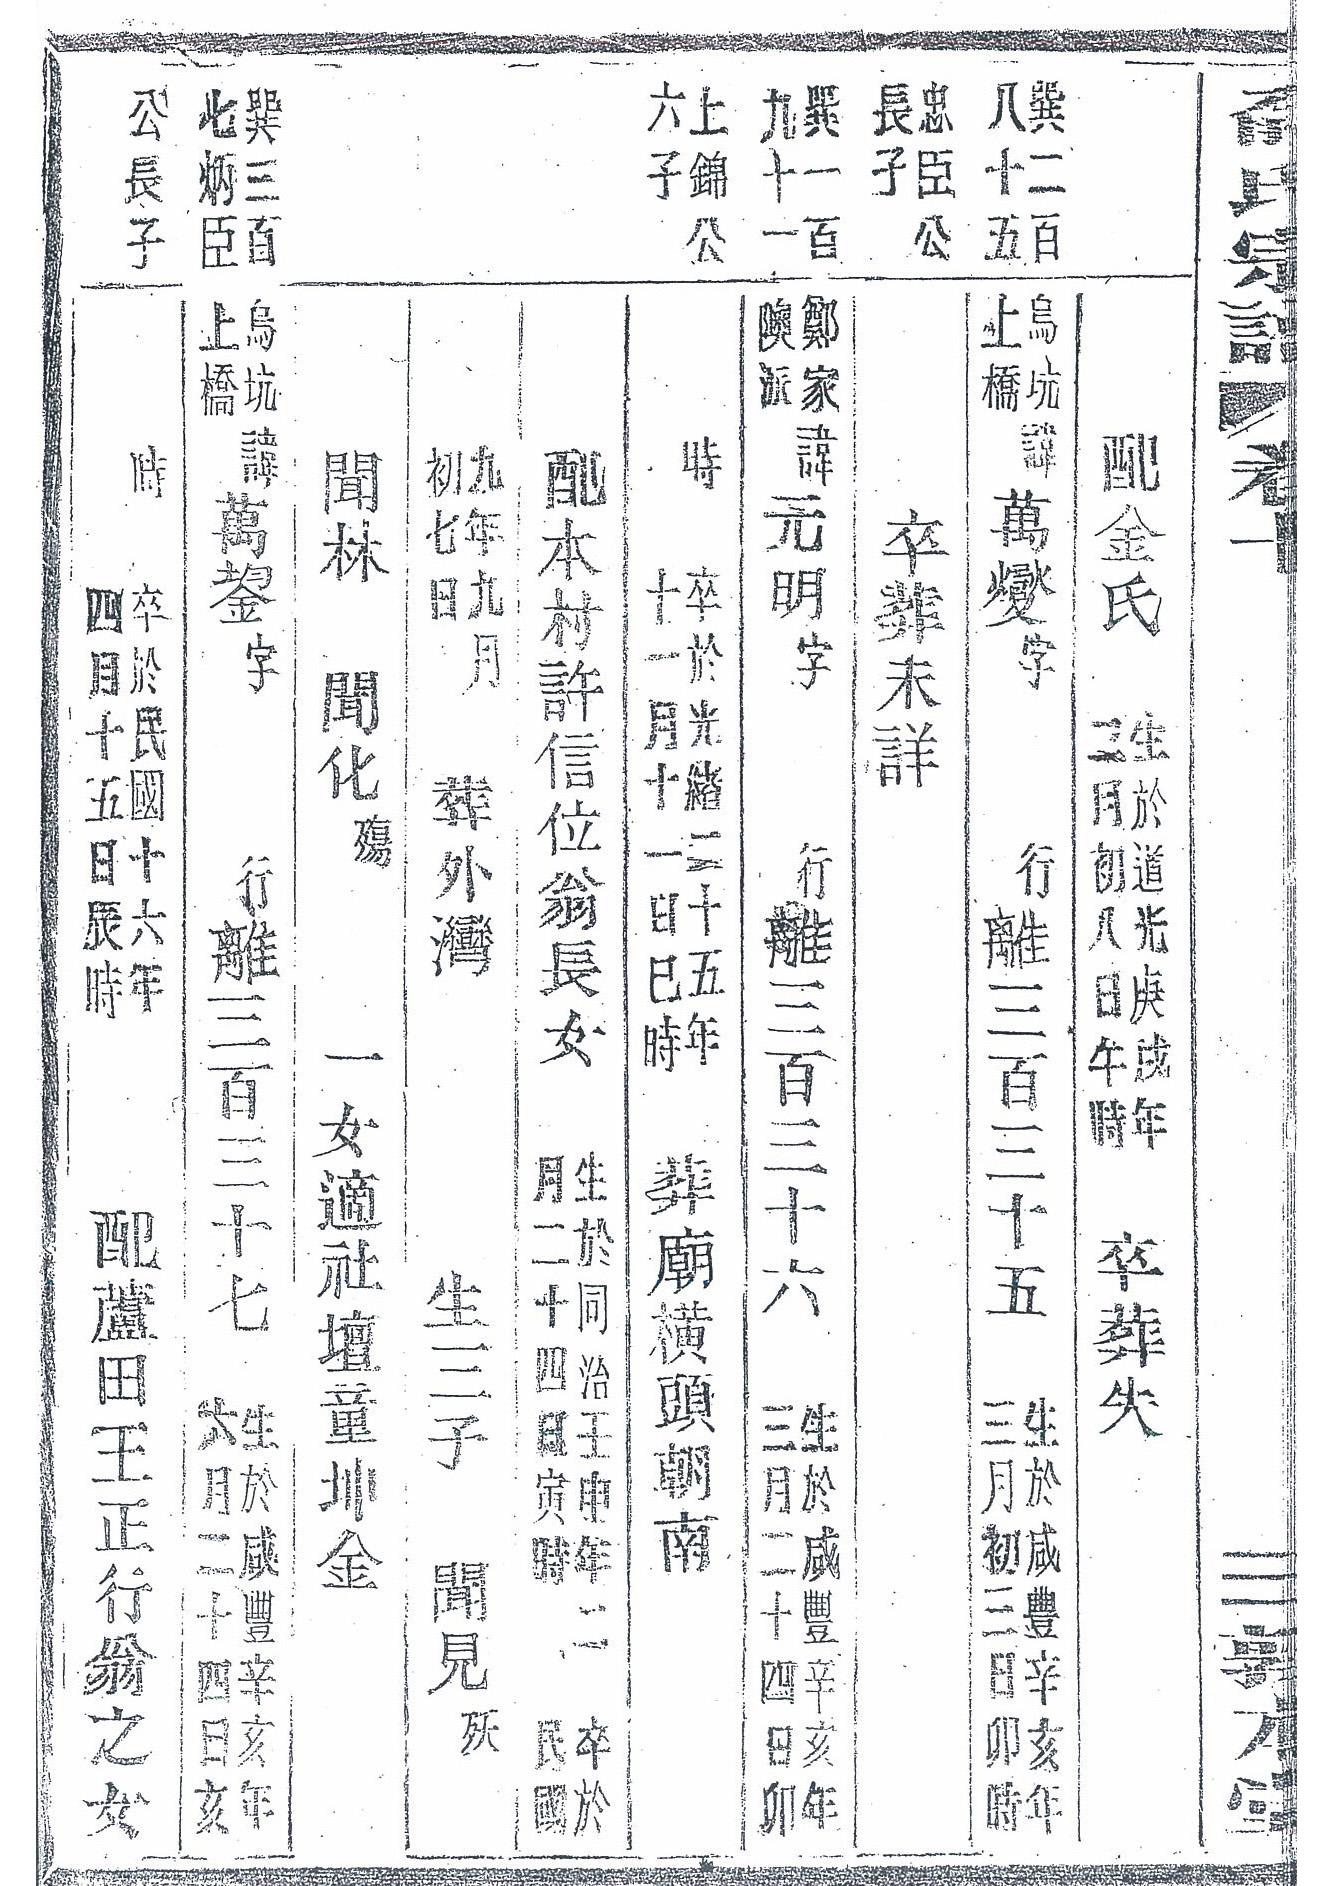 氏宗譜 卷一
配金氏 生於道光庚戌年二月初八日午時 卒葬失
巽二百八十五 烏坑上橋 諱萬燮字 行離三百三十五 生於咸豐辛亥年三月初三日卯時
忠臣公長子 卒葬未詳
巽一百九十一 鄭家陝派 諱元明字 行離三百三十六 生於咸豐辛亥年三月二十四日卯
上錦公六子 時 卒於光緒二十五年十一月十一日巳時 葬廟橫頭朝南
配本村許信位翁長女 生於同治壬申年二月二十四日寅時 卒於民國
九年九月初七日 葬外灣 生三子 聞見 殀
聞林 聞化 殤 一女適社壇童圳金
巽三百七炳臣 烏坑上橋 諱萬鋆字 行離三百三十七 生於咸豐辛亥年六月二十四日亥
公長子 時 卒於民國十六年四月十五日辰時 配蘆田王正行翁之女